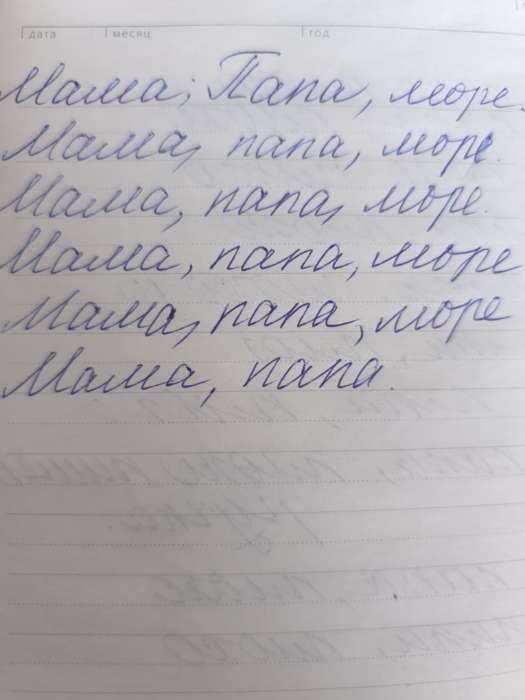 дата месяц год
Мама; Папа, море.
Мама, папа, море.
Мама, папа, море.
Мама, папа, море
Мама, папа, море
Мама, папа.